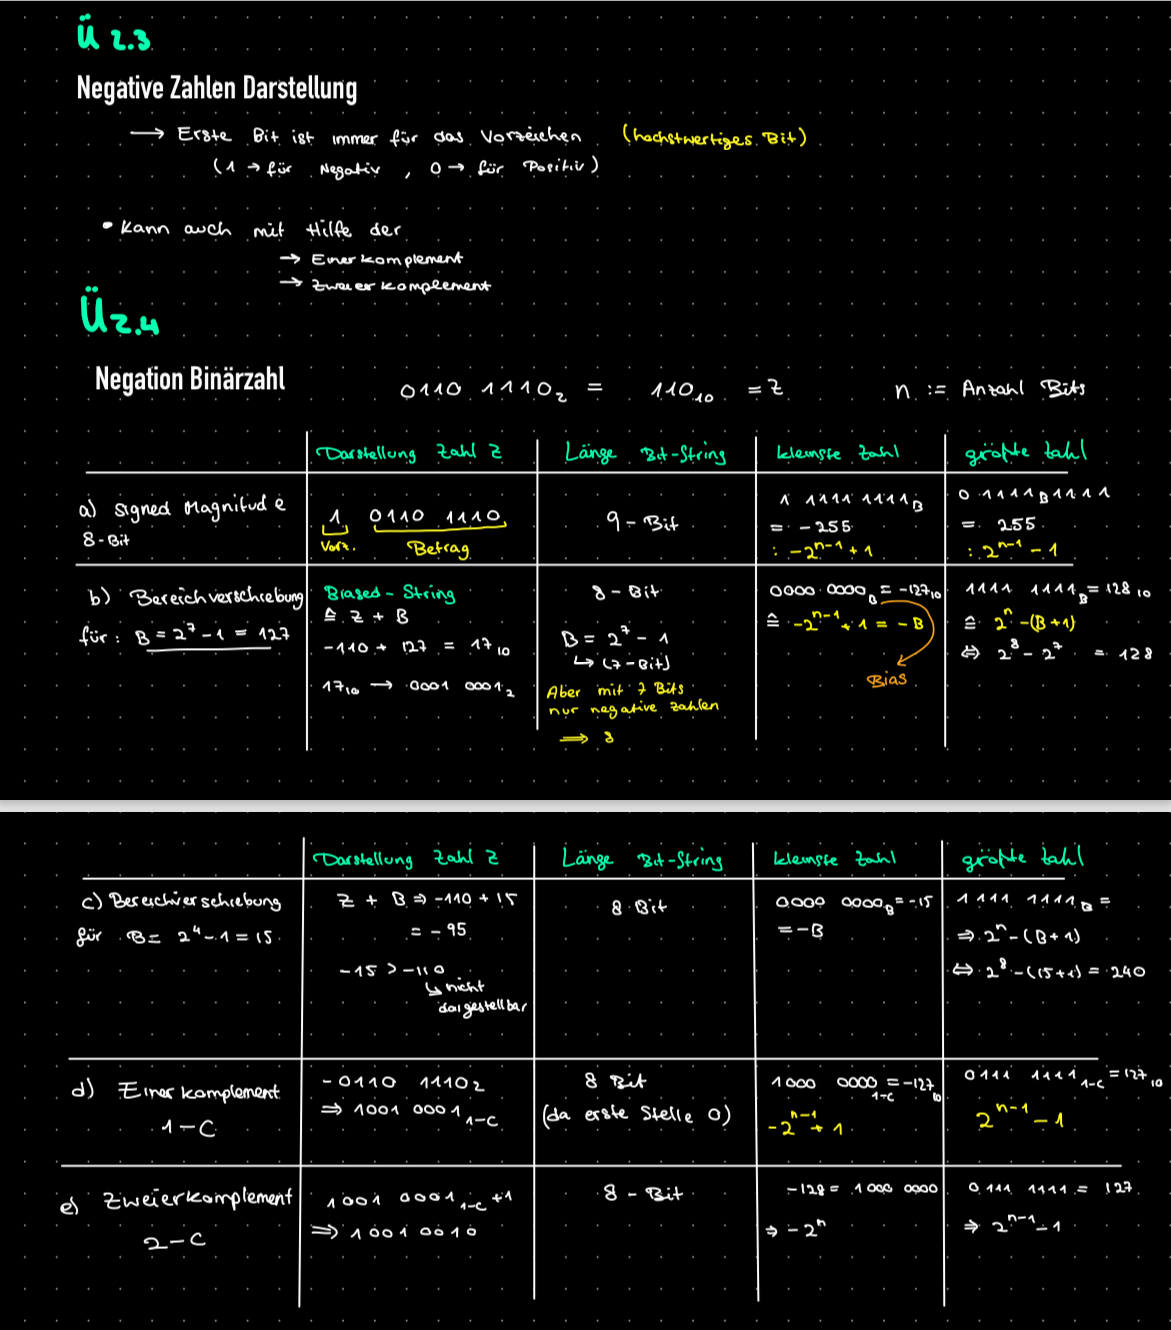 Ü 2.3
Negative Zahlen Darstellung
→ Erste Bit ist immer für das Vorzeichen (höchstwertiges Bit)
(1 → für Negativ , 0 → für Positiv)
• Kann auch mit Hilfe der
→ Einerkomplement
→ Zweierkomplement
Ü 2.4
Negation Binärzahl
0110 1110₂ = 110₁₀ = Z
n := Anzahl Bits
Darstellung Zahl Z
Länge Bit-String
kleinste Zahl
größte Zahl
a) Signed Magnitude
8-Bit
1 0110 1110
Vorz. Betrag
9-Bit
1 1111 1111_B
= -255
: -2^(n-1) + 1
0 1111_B 1111
= 255
: 2^(n-1) - 1
b) Bereichverschiebung
für: B = 2^7 - 1 = 127
Biased-String
≙ Z + B
-110 + 127 = 17₁₀
17₁₀ → 0001 0001₂
8-Bit
B = 2^7 - 1
↳ (7-Bit)
Aber mit 7 Bits
nur negative Zahlen
⇒ 8
0000 0000_B = -127₁₀
≙ -2^(n-1) + 1 = -B
Bias
1111 1111_B = 128₁₀
≙ 2^n - (B+1)
⇔ 2^8 - 2^7 = 128
Darstellung Zahl Z
Länge Bit-String
kleinste Zahl
größte Zahl
c) Bereichverschiebung
für B = 2^4 - 1 = 15
Z + B ⇒ -110 + 15
= -95
-15 > -110
↳ nicht
dargestellbar
8 Bit
0000 0000_B = -15
= -B
1111 1111_B =
⇒ 2^n - (B+1)
⇔ 2^8 - (15+1) = 240
d) Einerkomplement
1-C
-0110 1110₂
⇒ 1001 0001_1-C
8 Bit
(da erste Stelle 0)
1000 0000_1-C = -127₁₀
-2^(n-1) + 1
0111 1111_1-C = 127₁₀
2^(n-1) - 1
e) Zweierkomplement
2-C
1001 0001_1-C +1
⇒ 1001 0010
8-Bit
-128 = 1000 0000
⇒ -2^n
0111 1111 = 127
⇒ 2^(n-1) - 1